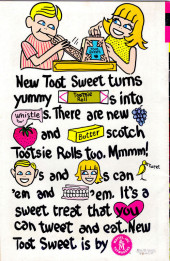 New Toot Sweet turns
yummy Tootsie Roll s into
whistle s. There are new
and Butter scotch
Tootsie Rolls too. Mmmm!
s and s can
'em and 'em. It's a
sweet treat that you
can tweet and eat. New
Toot Sweet is by